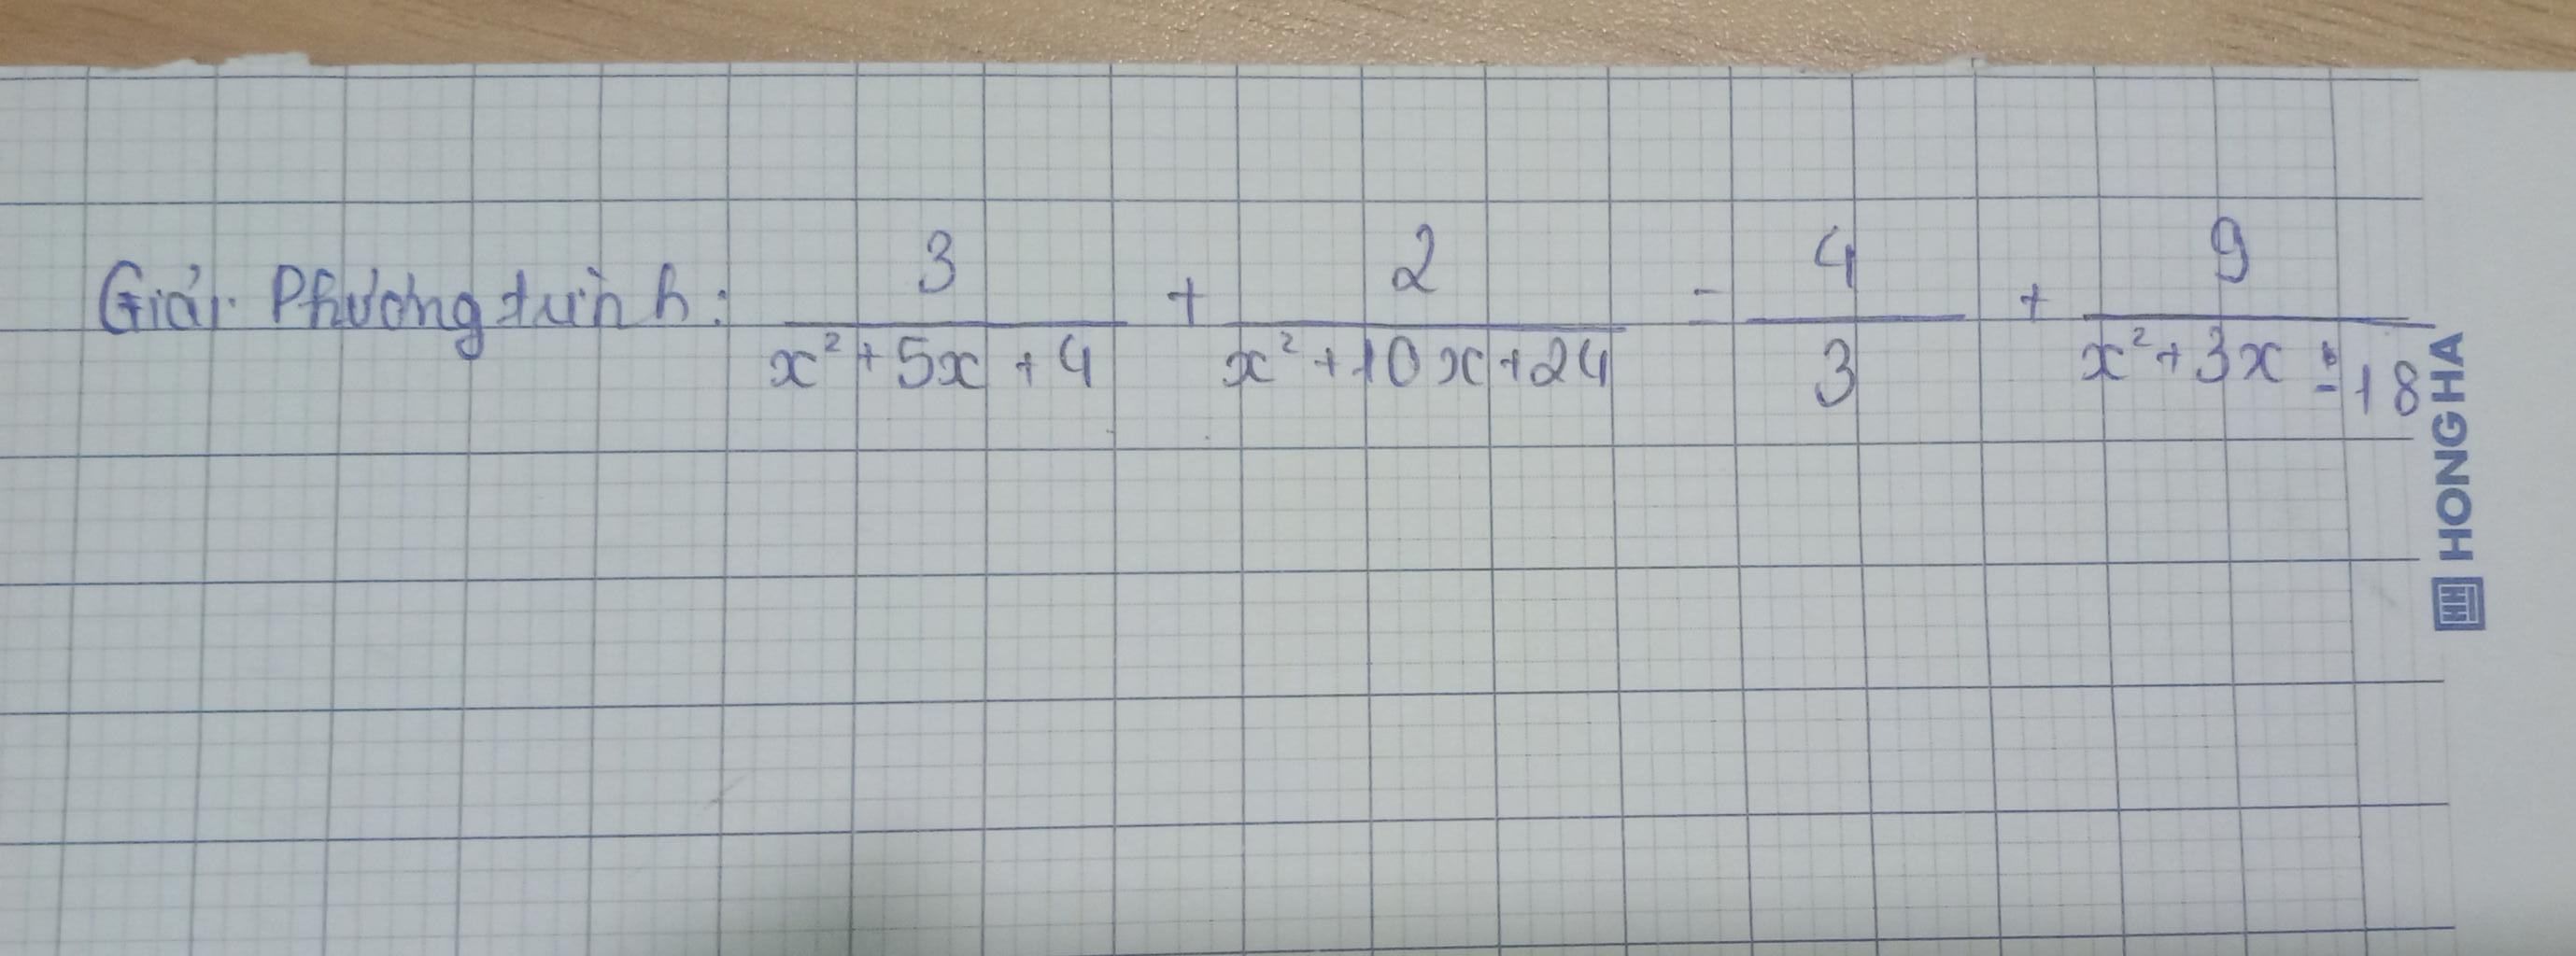 Giải Phương trình: 3/(x² + 5x + 4) + 2/(x² + 10x + 24) = 4/3 + 9/(x² + 3x - 18)
HONG HA